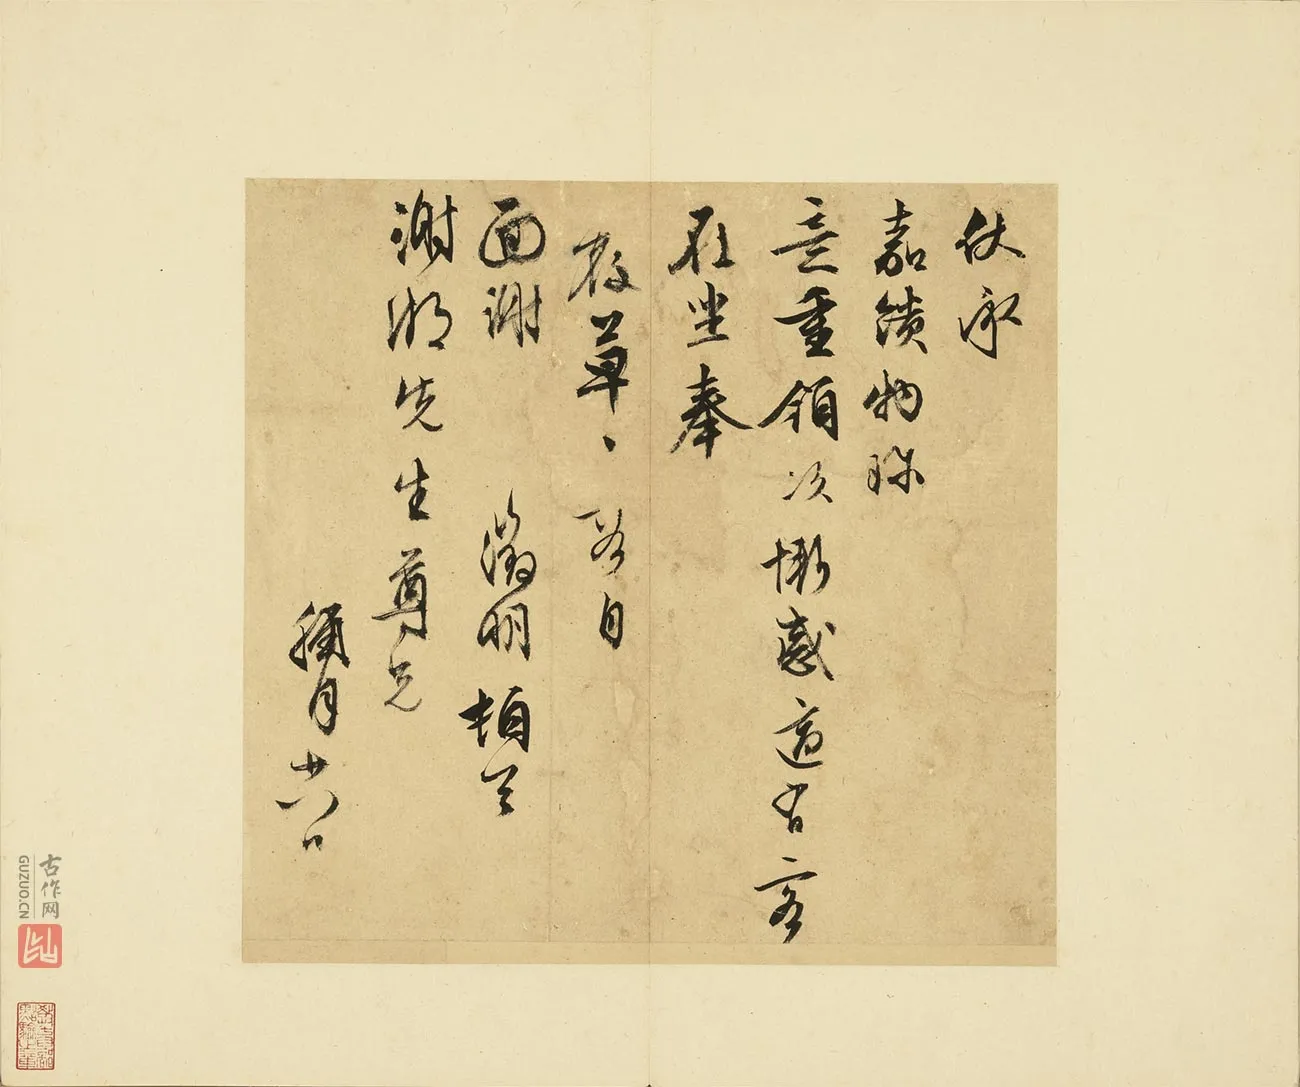 伏承
嘉饋物珎
意重領次慚感適有客
在坐奉
報草〻容日
面謝 徵明頓首
謝湖先生尊兄
臘月廿八日
古作网
GUZUO.CN